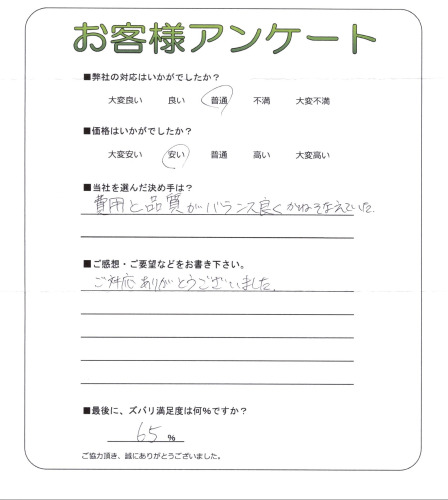 お客様アンケート
■弊社の対応はいかがでしたか？
大変良い 良い 普通 不満 大変不満
■価格はいかがでしたか？
大変安い 安い 普通 高い 大変高い
■当社を選んだ決め手は？
費用と品質がバランス良くかねそなえていた。
■ご感想・ご要望などをお書き下さい。
ご対応ありがとうございました。
■最後に、ズバリ満足度は何%ですか？
65 %
ご協力頂き、誠にありがとうございました。